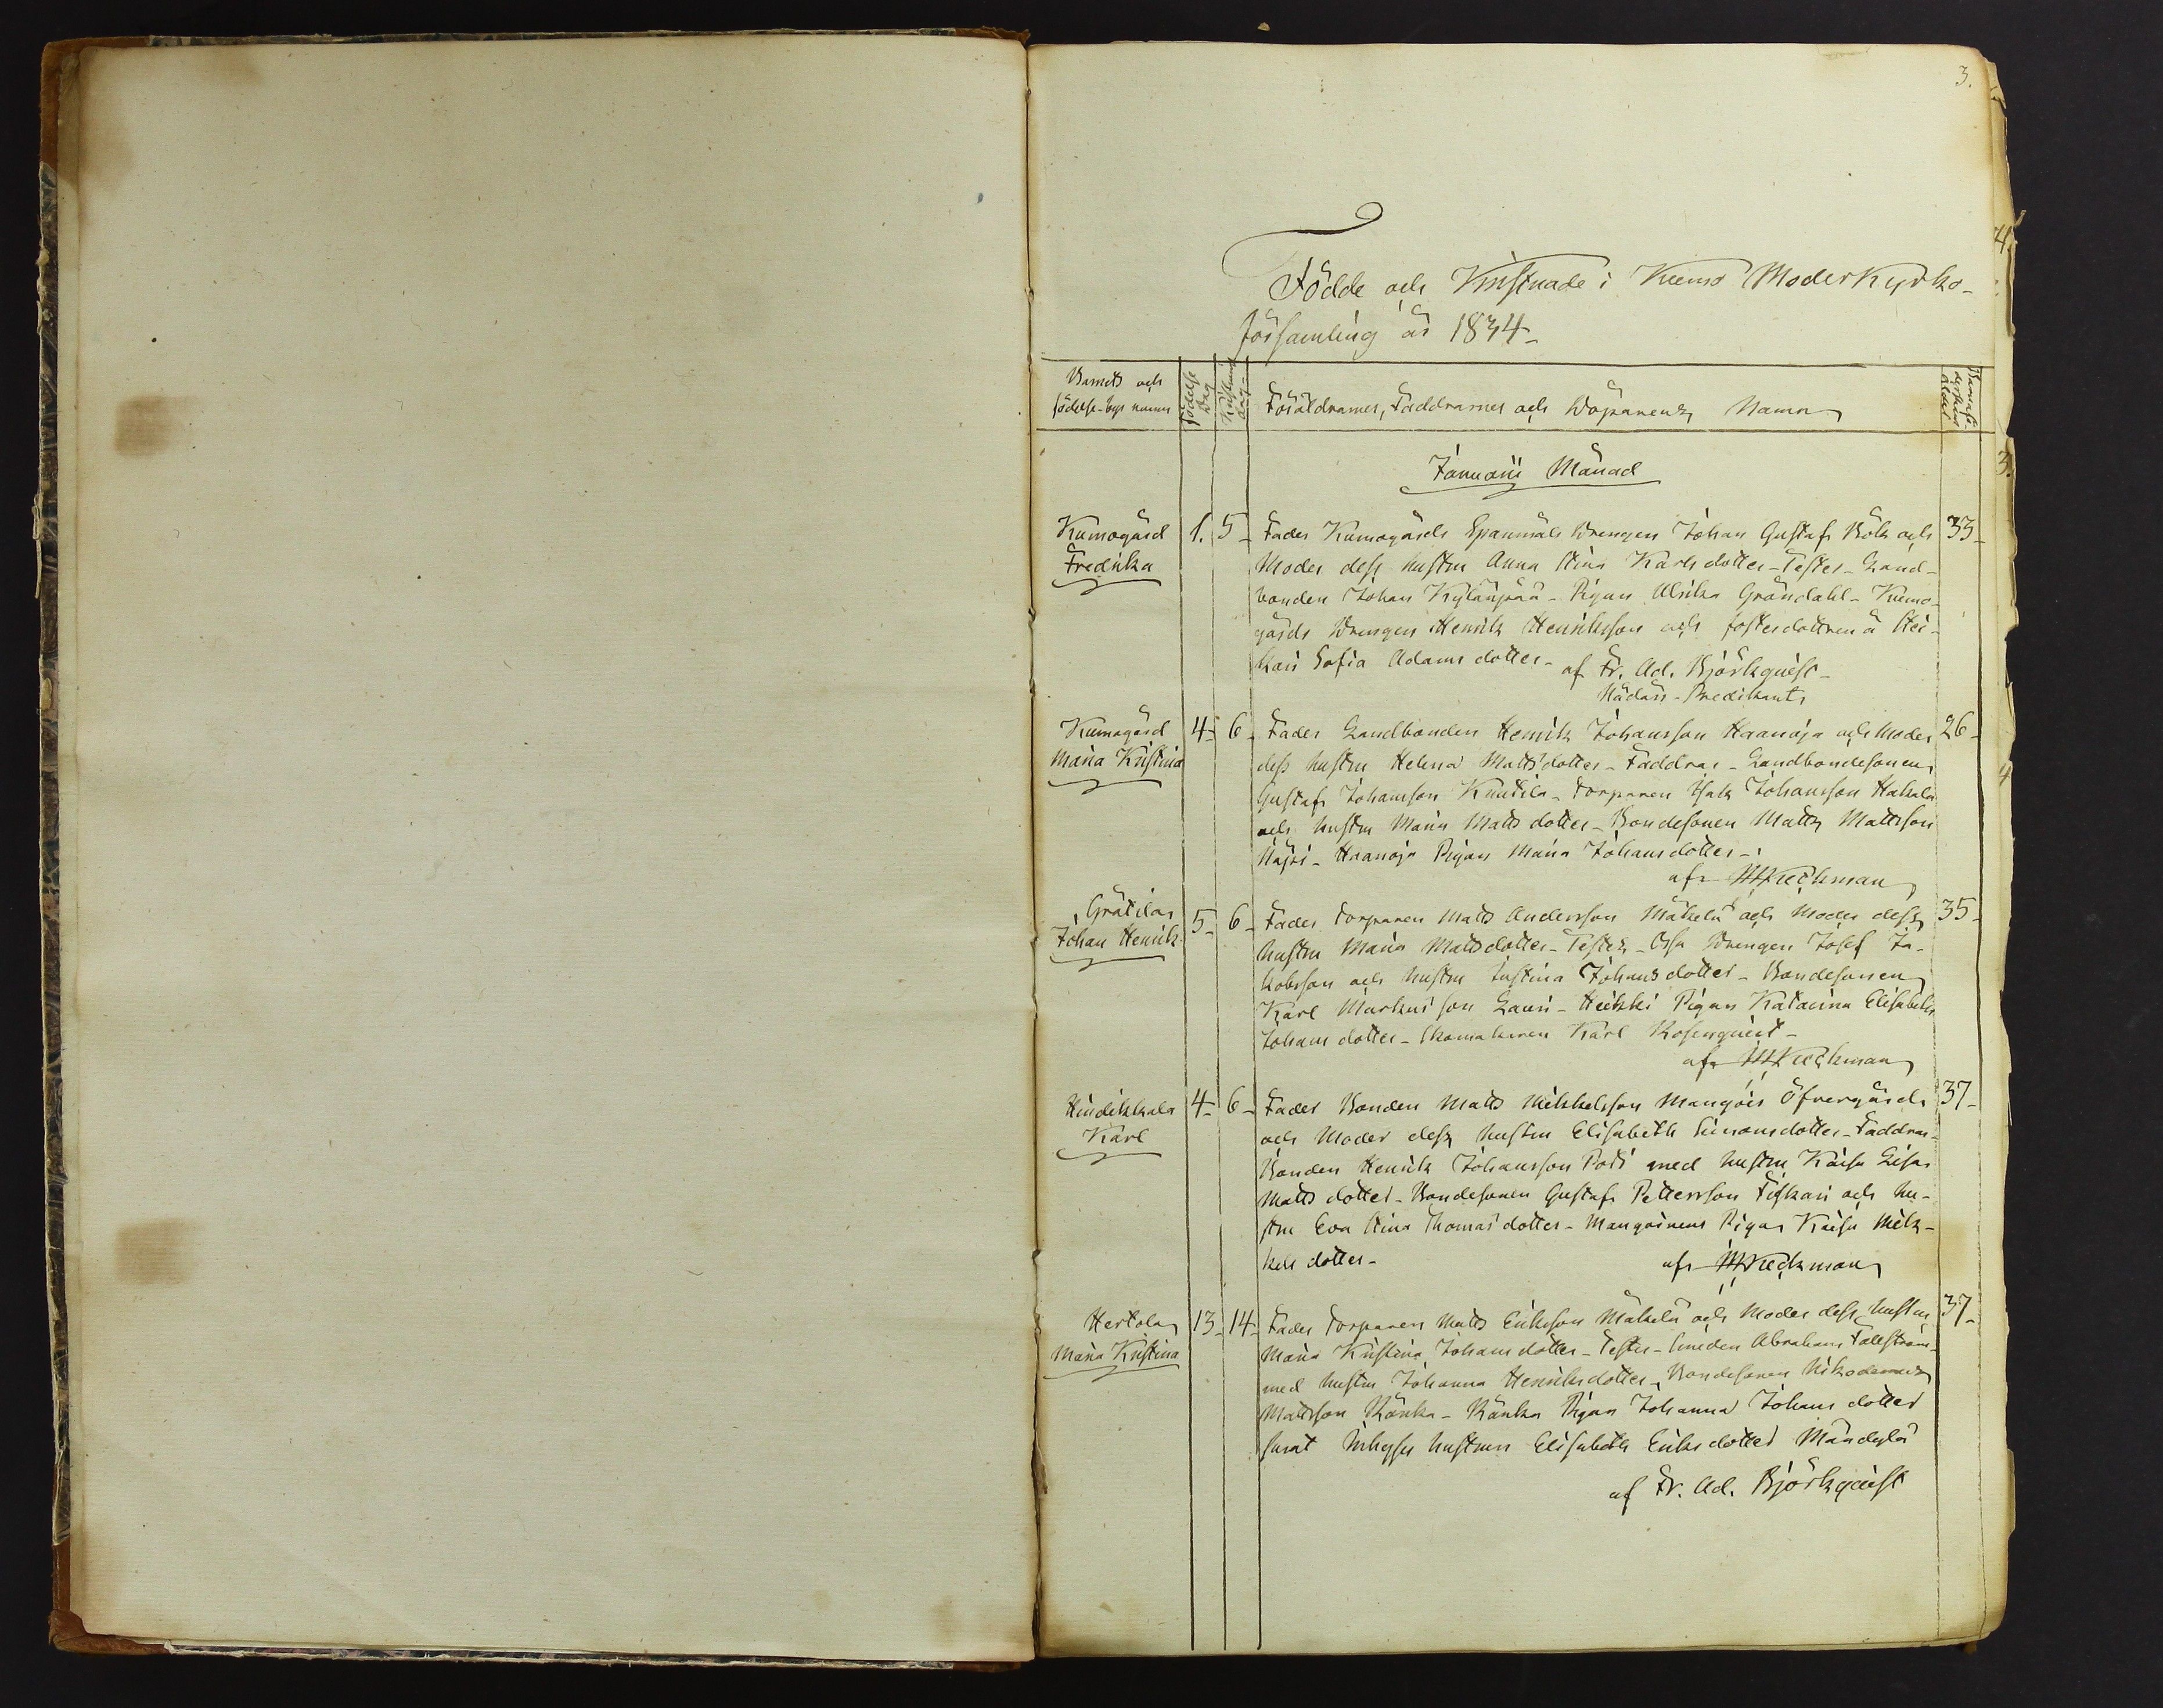 3.
Födde och Kristnade i Kumo Moderkyrko-
församling år 1834_
Barnets och
födelse-bys namn
födelse
Dag
Kristnings
dag-
Föräldrarnes, Faddrarnes och Döparens Namn
Moderns
ålder
Januarii Månad
Kumogård
Fredrika
1. 5_ Fader Kumogårds Spanmåls Drengen Johan Gustaf Bök och 33_
Moder dess hustru Anna Stina Karlsdotter_Testes_Land-
bonden Johan Kylänpää_Pigan Ulrika Gröndahl_Kumo-
gårds Drengen Henrik Henriksson och fosterdottren å Hei-
kari Sofia Adamsdotter_ af Fr. Ad. Björkquist_
Nådårs-Predikant
Kumogård
Maria Kristina
4_ 6_ Fader Landbonden Henrik Johansson Haanoja och Moder 26_
dess hustru Helena Mattsdotter_Faddrar_Landbondesonen
Gustaf Johansson Knutila_Torparen Isak Johansson Hakala
och hustru Maria Mattsdotter_Bondesonen Matts Mattsson
Näpi_Haanoja Pigan Maria Johansdotter_
af
Grötila
Johan Henrik
5_ 6_ Fader Torparen Matts Andersson Mäkelä och Moder dess 35_
hustru Maria Mattsdotter_Testes_Drengen Josef Ja-
kobsson och hustru Justina Johansdotter_Bondesonen
Karl Markusson Lauri_Heikki Pigan Katarina Elisabeth
Johansdotter_Skomakaren Karl Rosenqvist_
af
Hindikkala
Karl
4_ 6_ Fader Bonden Matts Mikkelsson Mangois Öfvergårds 37_
och Moder dess hustru Elisabeth Simonsdotter_Faddrar_
Bonden Henrik Johansson Poti med hustru Kaisa Lisa
Mattsdotter_Bondesonen Gustaf Pettersson Fiskari och hu-
stru Eva Stina Thomasdotter_Mangoinens Piga Kaisa Mik-
kelsdotter_
af
Hertola
Maria Kristina
13_ 14_ Fader Torparen Matts Eriksson Mäkelä och Moder dess hustru 37_
Maria Kristina Johansdotter_Testes_Smeden Abraham Fallström
med hustru Johanna Henriksdotter_Bondesonen Nikodemus
Mattsson Känkä_Känkä Pigan Johanna Johansdotter
samt Inhyses hustrun Elisabeth Eriksdotter Mändylä
af Fr. Ad. Björkquist
4.
3.
4